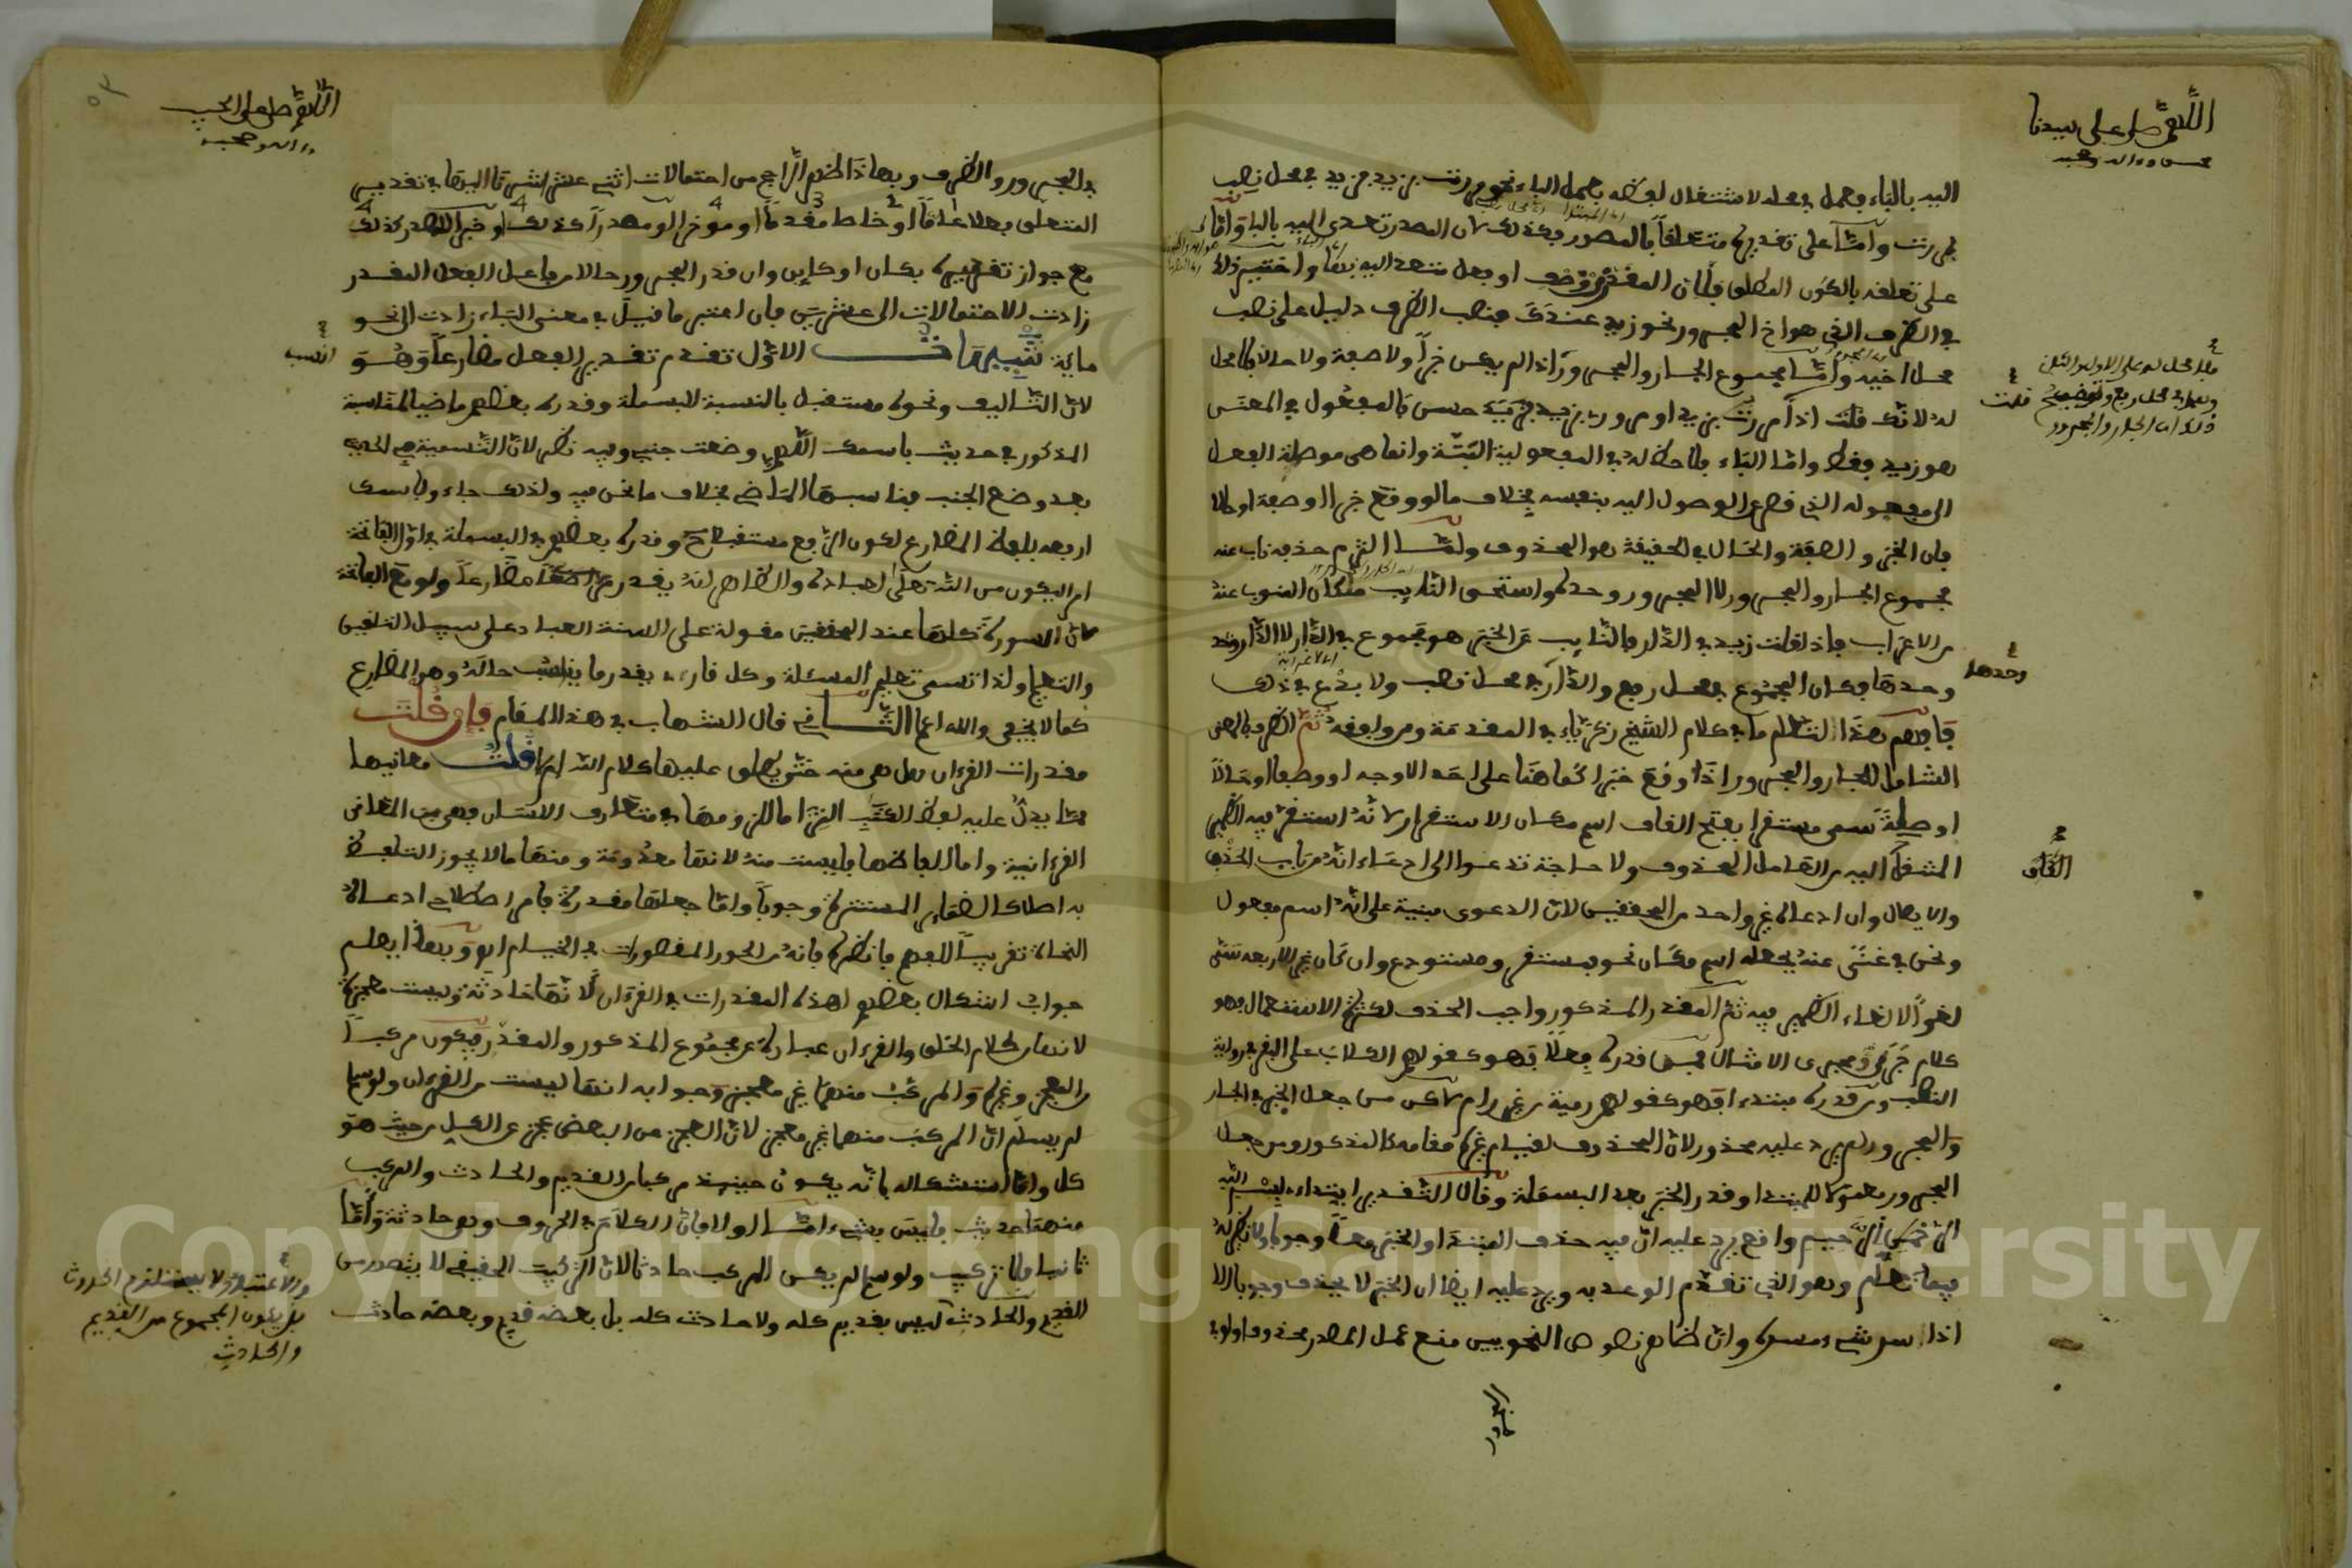 اللهم صل على سيدنا
محمد وءاله وصحبه
اليه بالباء وعمل في محله لاشتغال لفظه بعمل الباء نحو مررت بزيد فزيد في محل نصب
بمررت وأما على تقديره متعلقا بالمصدر فكذلك لان المصدر تعدى اليه بالباء وأما
على تعلقه بالكون المطلق فلأن المقدر
في الظرف الذي هو اخ المجرور نحو زيد عندك فنصب الظرف دليل على نصب
محل اخيه وأما مجموع الجار والمجرور اذا لم يكن خبرا ولا صفة ولا حالا فلا محل
له لانك قلت اذا مررت بزيد او مرور بزيد فزيد حسن فالمفعول في المعنى
هو زيد فقط واما الباء فلا حظ له في المفعولية البتة وانما هي موصلة الفعل
الى مفعوله الذي قصر عن الوصول اليه بنفسه بخلاف ما لو وقع خبرا او صفة او حالا
فان الخبر والصفة والحال في الحقيقة هو المحذوف ولما التزم حذفه ناب عنه
مجموع الجار والمجرور لا المجرور وحده واستحق النايب ما كان للمنوب عنه
من الاعراب فاذا قلت زيد في الدار فالنايب عن الخبر هو مجموع في الدار لا الدار
وحدها فكان المجموع في محل رفع والدار في محل نصب ولا بدع في ذلك
فافهم هذا لتعلم ما في كلام الشيخ زكرياء في المقدمة ومن وافقه ثم الظرف بالمعنى
الشامل للجار والمجرور اذا وقع خبرا كما هنا على احد الاوجه او وصفا او حالا
او صلة سمى مستقرا بفتح القاف اسم مكان الاستقرار لانه استقر فيه الضمير
المنتقل اليه من العامل المحذوف ولا حاجة تدعوا الى ادعاء انه من باب الحذف
والايصال وان ادعاه غير واحد من المحققين لان الدعوى مبنية على انه اسم مفعول
ونحن في غنى عنه بجعله اسم مكان نحو فمستقر ومستودع وان كان غير الاربعة سمى
لغوا لالغاء الضمير فيه ثم المقدر المذكور واجب الحذف لكثرة الاستعمال فهو
كلام جرى مجرى الامثال فمن قدره فعلا فهو كقولهم الكلاب على البقر في رواية
النصب ومن قدره مبتدءا فهو كقولهم رمية من غير رام لاكن من جعل الخبر في الجار
والمجرور لم يرد عليه محذور لان المحذوف لقيام غيره مقامه كالمذكور ومن جعل
المجرور معمولا للمبتدا وقدر الخبر بعد البسملة وقال التقدير ابتداءي بسم الله
الرحمن الرحيم واقع يرد عليه ان فيه حذف المبتدا والخبر معا وجوبا ولا نظير له
فيما نعلم وهو الذي تقدم الوعد به ويرد عليه ايضا ان الخبر لا يحذف وجوبا الا
اذا سد شيء مسده وان ظاهر نصوص النحويين منع عمل المصدر محذوفا ولو في
المجرور
فلا محل له على الاول والثاني
قلت
وحدها
القاف
اللهم صل على الحبيب
وءاله وصحبه
في المجرور والظرف وبهذا انضم الراجع من احتمالات اثنى عشر اشرنا اليها في تقدير
المتعلق فعلا عاما او خاصا مقدما او موخرا او مصدرا كذلك او خبرا لمصدر كذلك
مع جواز تقديره بكان او كاين وان قدر المجرور حالا من فاعل الفعل المقدر
زادت الاحتمالات الى عشرين فان اعتبر ما قيل في معنى الباء زادت الى نحو
ماية تنبيهات الاول تقدم تقدير الفعل مضارعا وهو
انسب
لان التاليف ونحوه مستقبل بالنسبة للبسملة وقدره بعضهم ماضيا لمناسبة
المذكور في حديث باسمك اللهم وضعت جنبي وفيه نظر لان التسمية في الحديث
بعد وضع الجنب فناسبها الماضي بخلاف ما نحن فيه ولذلك جاء وباسمك
ارفعه بلفظ المضارع لكون الرفع مستقبلا وقدره بعضهم في البسملة في اول الفاتحة
امرا ليكون من الله تعلى لعباده والظاهر انه يقدر
لان السورة كلها عند المحققين مقولة على السنة العباد على سبيل التلقين
والتعليم ولذا تسمى تعليم المسئلة وكل قارئ يقدر ما يناسب حاله وهو المضارع
كما لا يخفى والله اعلم الثاني قال الشهاب في هذا المقام فإن قلت
مقدرات القرءان هل هي منه حتى يطلق عليها كلام الله ام لا قلت معانيها
مما يدل عليه لفظ الكتاب التزاما للزومها في متعارف اللسان فهي من المعاني
القرءانية واما الفاظها فليست منه لانها معدومة ومنها ما لا يجوز التلفظ
به اصلا كالضماير المستترة وجوبا واما جعلها مقدرة فامر اصطلاحي ادعاه
النحاة تقريبا للفهم فانظره فانه من الحور المقصورات في الخيام اهـ وبهذا يعلم
جواب اشكال بعضهم لهذه المقدرات في القرءان لانها حادثة وليست معجزة
لانها من كلام الخلق والقرءان عبارة عن مجموع المذكور والمقدر فيكون مركبا
من المعجز وغيره والمركب منهما غير معجز وجوابه انها ليست من القرءان ولو سلم
لم يسلم ان المركب منهما غير معجز لان العجز عن البعض عجز عن الكل من حيث هو
كل واما استشكاله بانه يكون حينئذ مركبا من القديم والحادث والمركب
منهما حديث فليس بشيء اما اولا فلان الكلام في الحروف وهي حادثة واما
ثانيا فلا تركيب ولو سلم لم يكن المركب حادثا لان التركيب الحقيقي لا يتصور من
القديم والحادث ليس بقديم كله ولا حادث كله بل بعضه قديم وبعضه حادث
بل يكون المجموع من القديم
والحادث